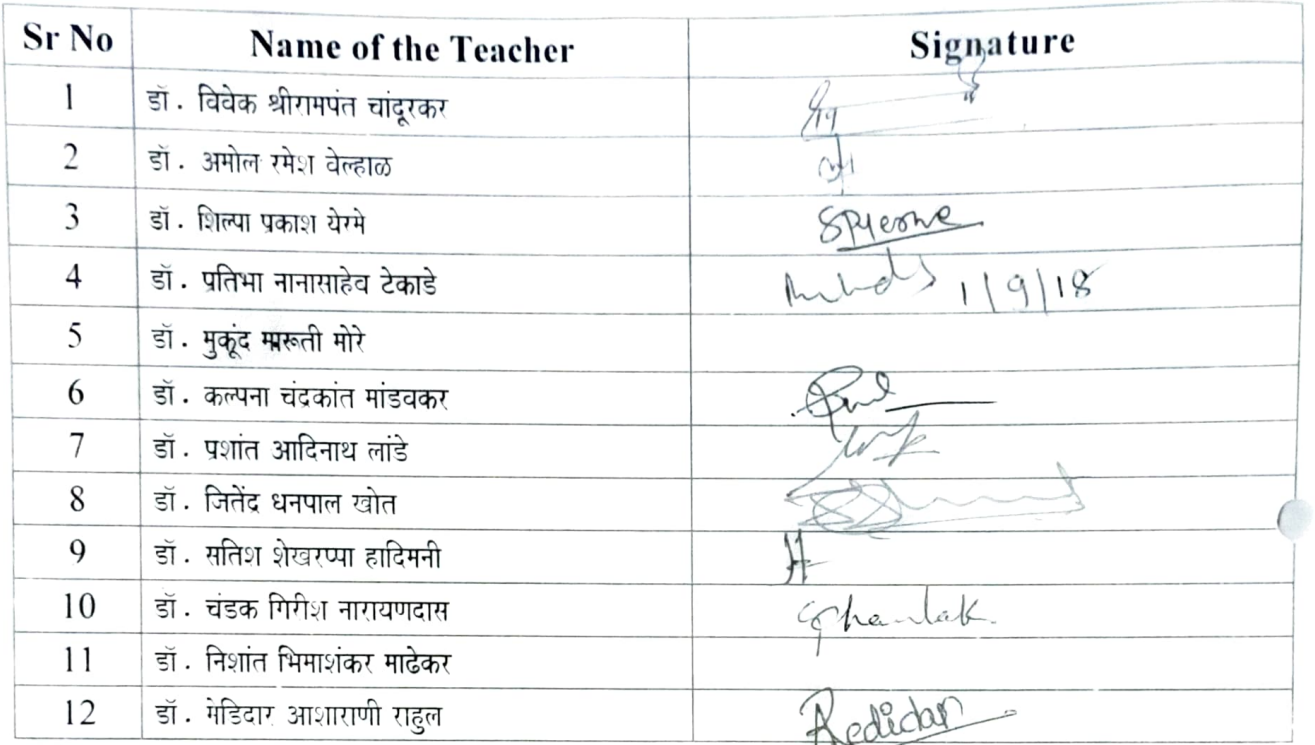 Sr No Name of the Teacher Signature
1 डॉ. विवेक श्रीरामपंत चांदूरकर
2 डॉ. अमोल रमेश वेल्हाळ
3 डॉ. शिल्पा प्रकाश येरमे SPYerme
4 डॉ. प्रतिभा नानासाहेव टेकाडे 1/9/18
5 डॉ. मुकूंद मारूती मोरे
6 डॉ. कल्पना चंद्रकांत मांडवकर
7 डॉ. प्रशांत आदिनाथ लांडे
8 डॉ. जितेंद्र धनपाल खोत
9 डॉ. सतिश शेखरप्पा हादिमनी H
10 डॉ. चंडक गिरीश नारायणदास
11 डॉ. निशांत भिमाशंकर माढेकर
12 डॉ. मेडिदार आशाराणी राहुल